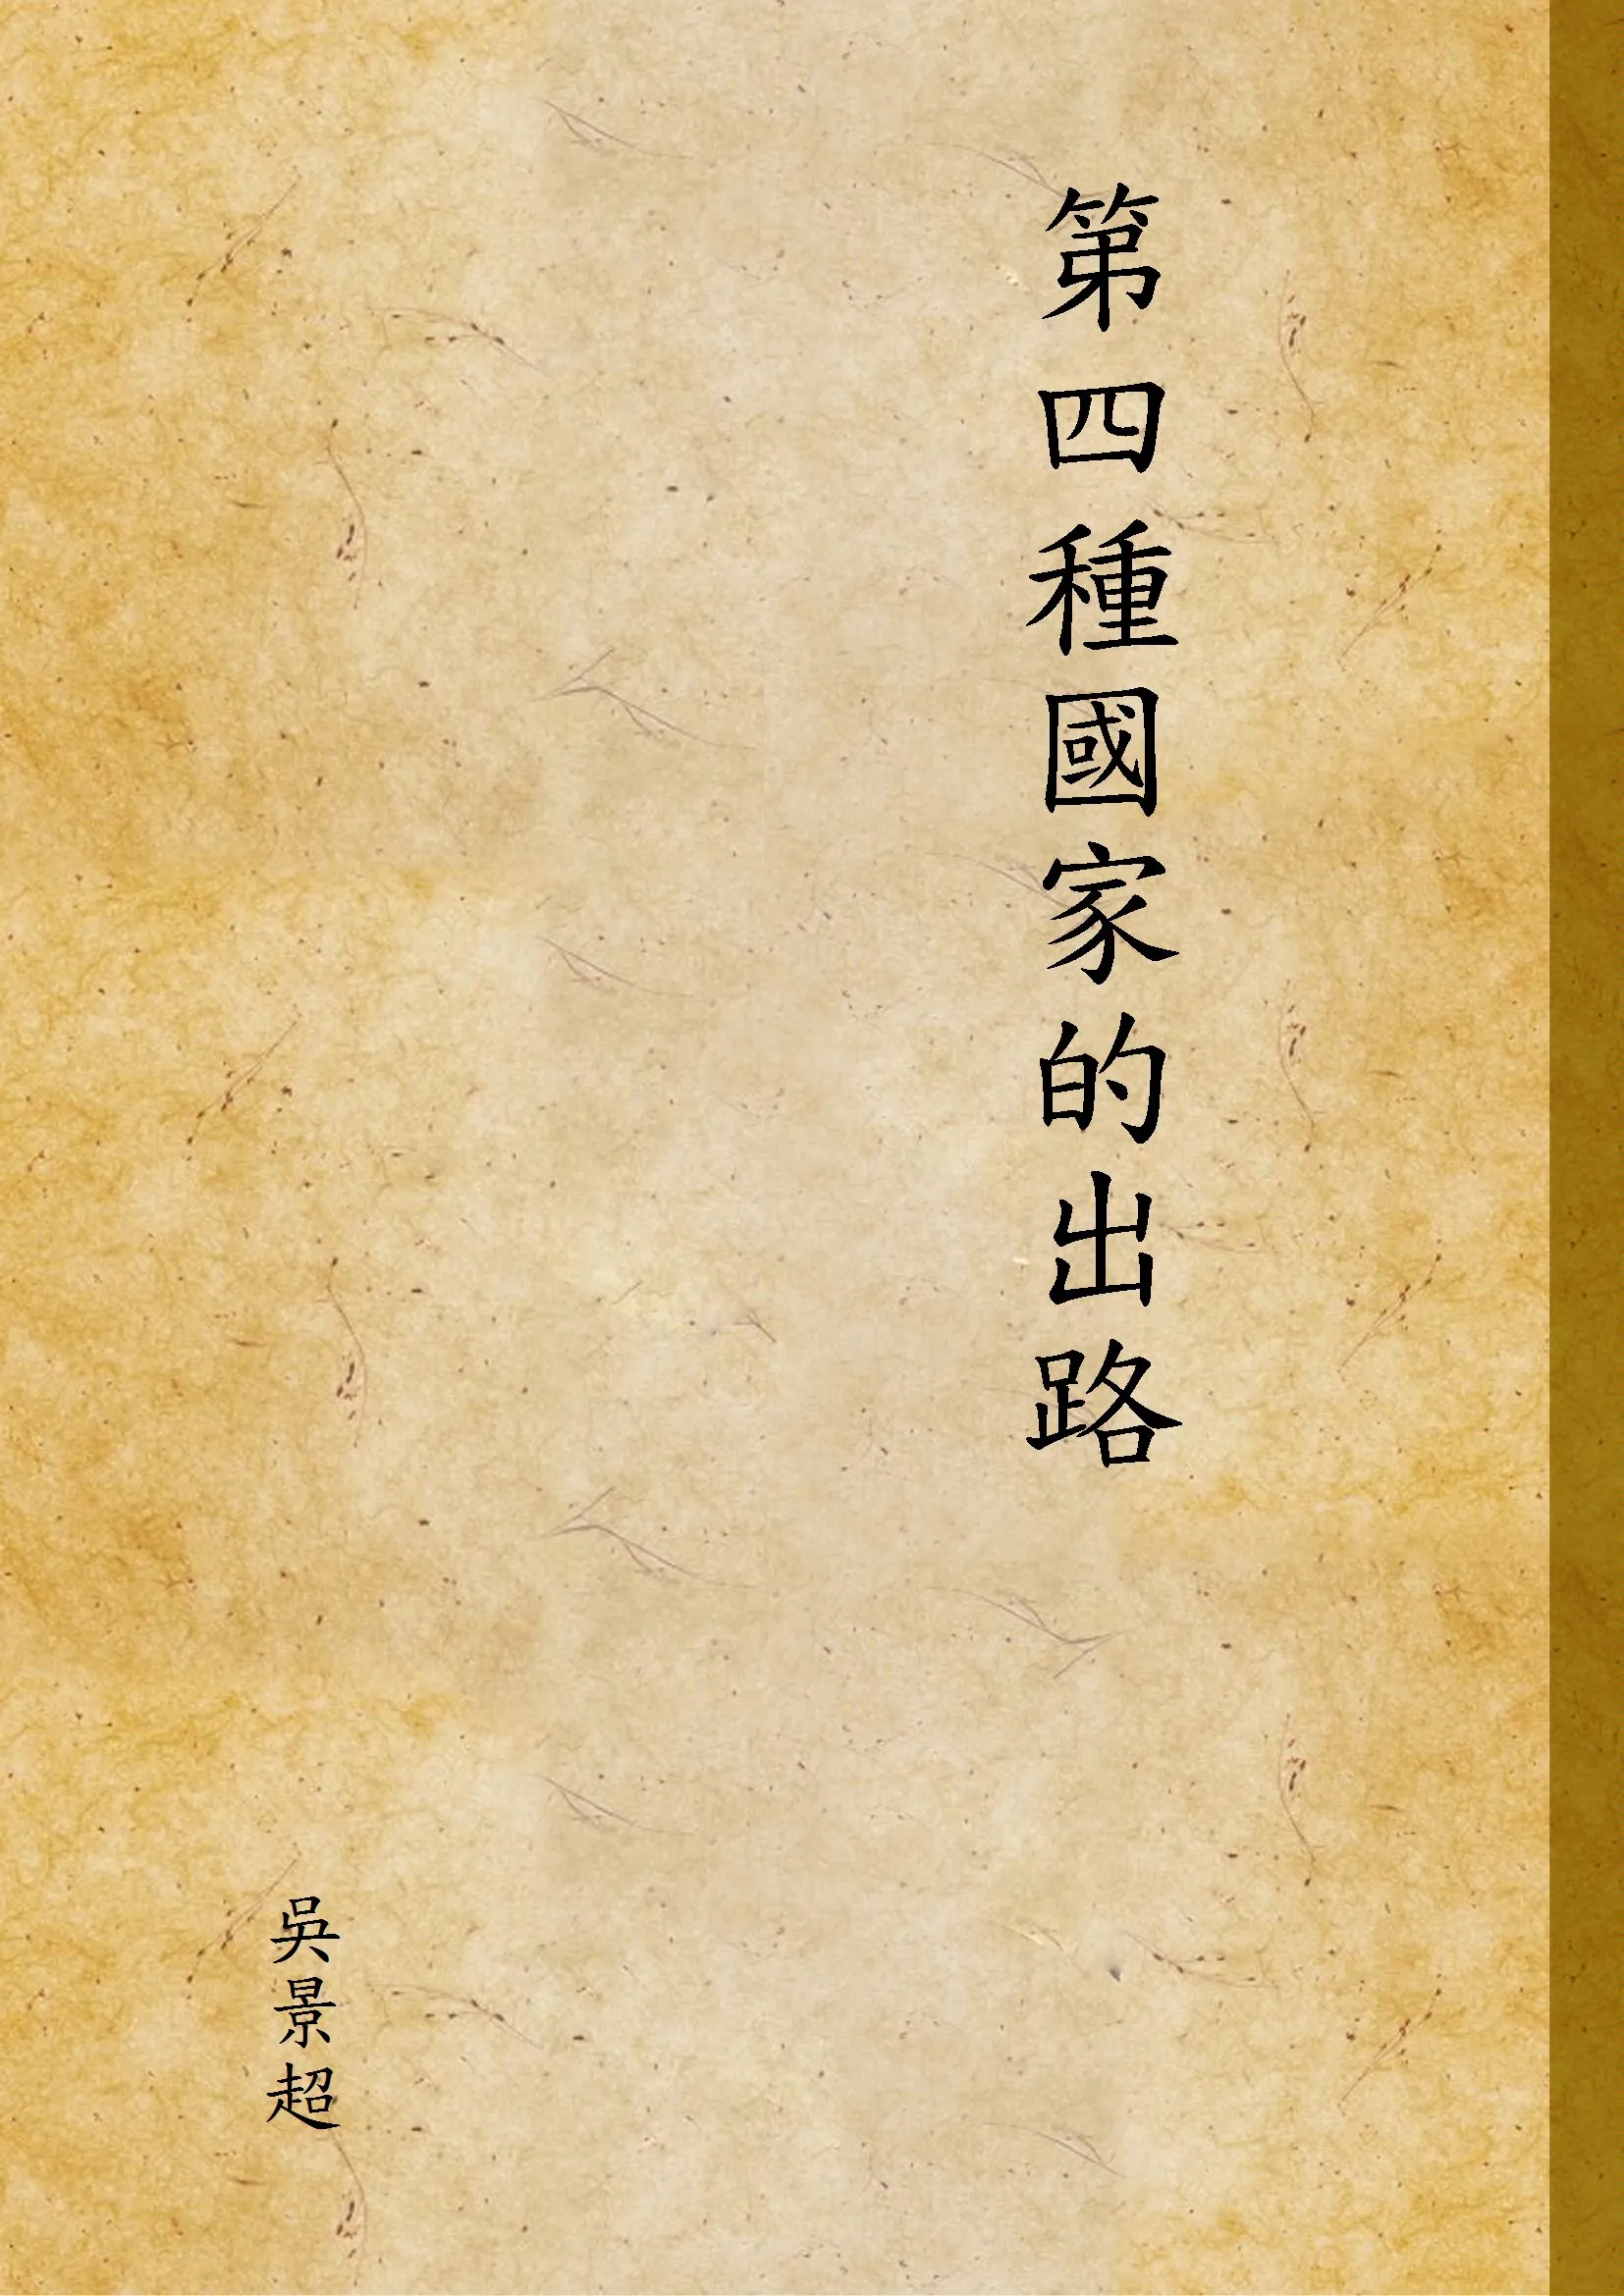 第四種國家的出路
吳景超